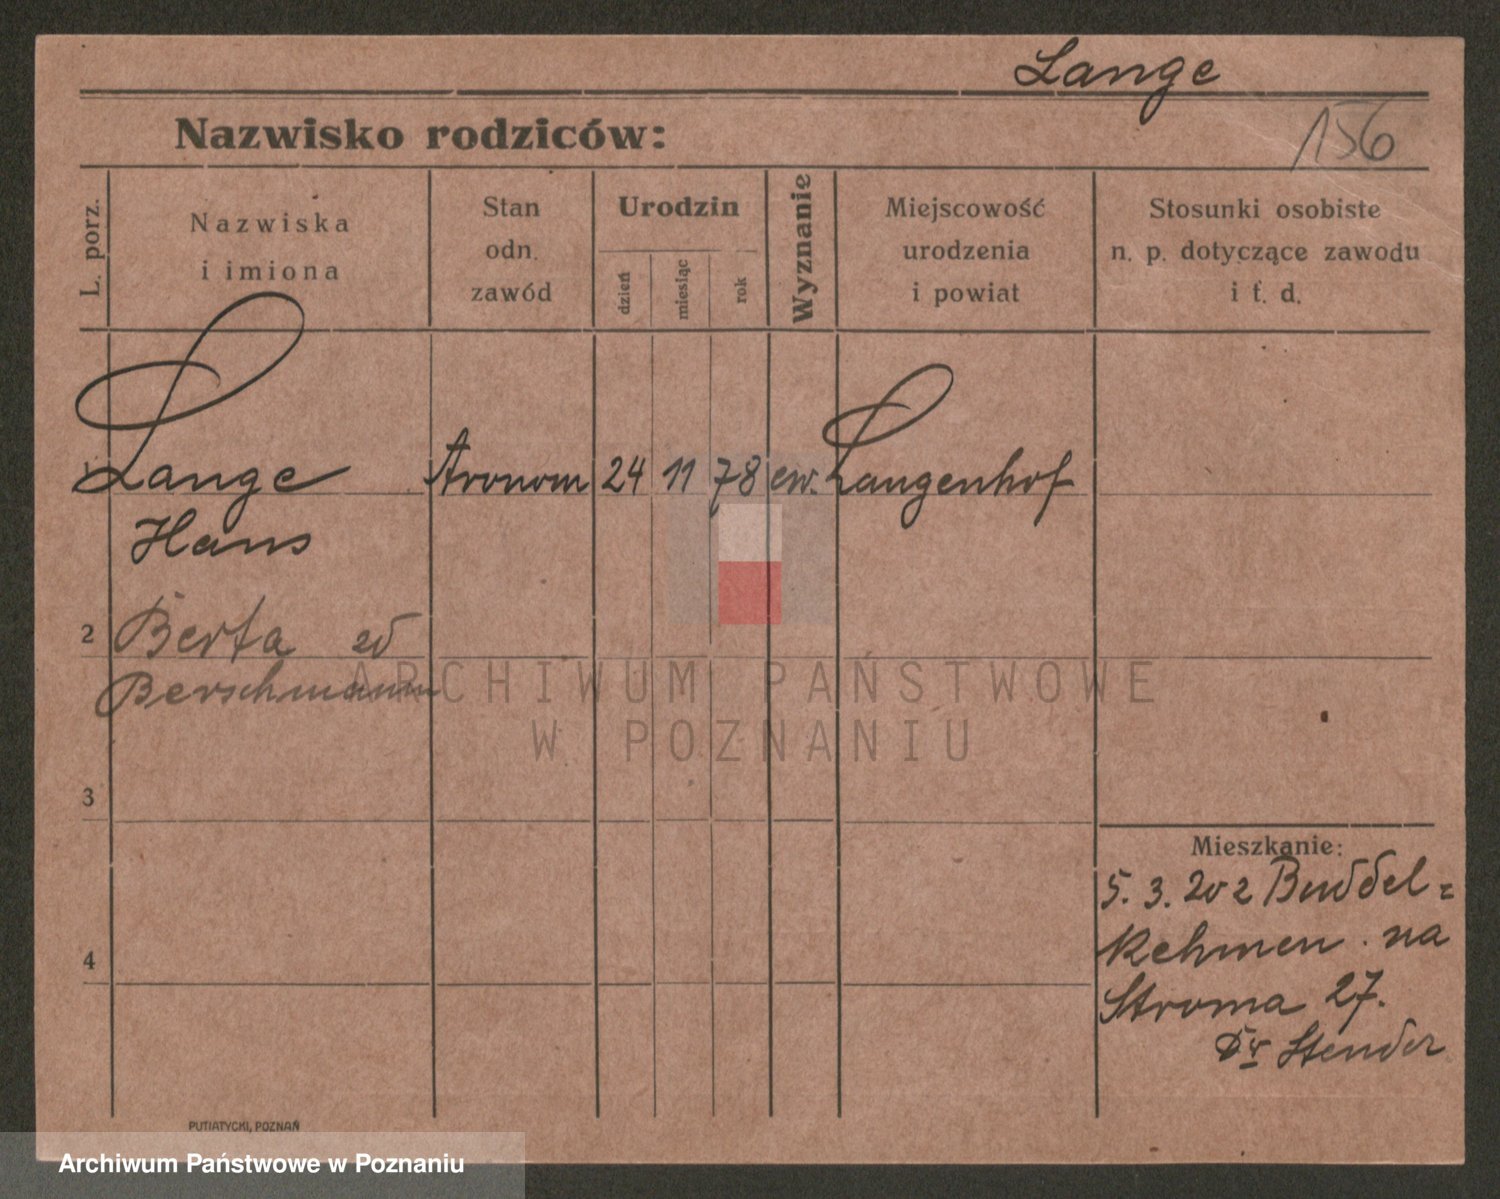 Lange
Nazwisko rodziców:
156
L. porz.
Nazwiska
i imiona
Stan
odn.
zawód
Urodzin
dzień
miesiąc
rok
Wyznanie
Miejscowość
urodzenia
i powiat
Stosunki osobiste
n. p. dotyczące zawodu
i t. d.
Lange Aronom 24 11 78 ew. Langenhof
Hans
2 Berta
Berschmann
3
4
Mieszkanie:
5. 3. 202 Buddel=
Rehmen. na
Stroma 27.
Dr Stender
PUTIATYCKI, POZNAŃ
ARCHIWUM PAŃSTWOWE
W POZNANIU
Archiwum Państwowe w Poznaniu